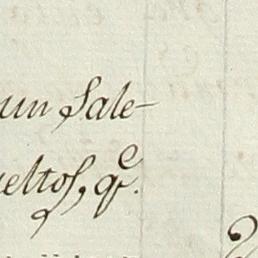 un Sale-
eltos, qe.